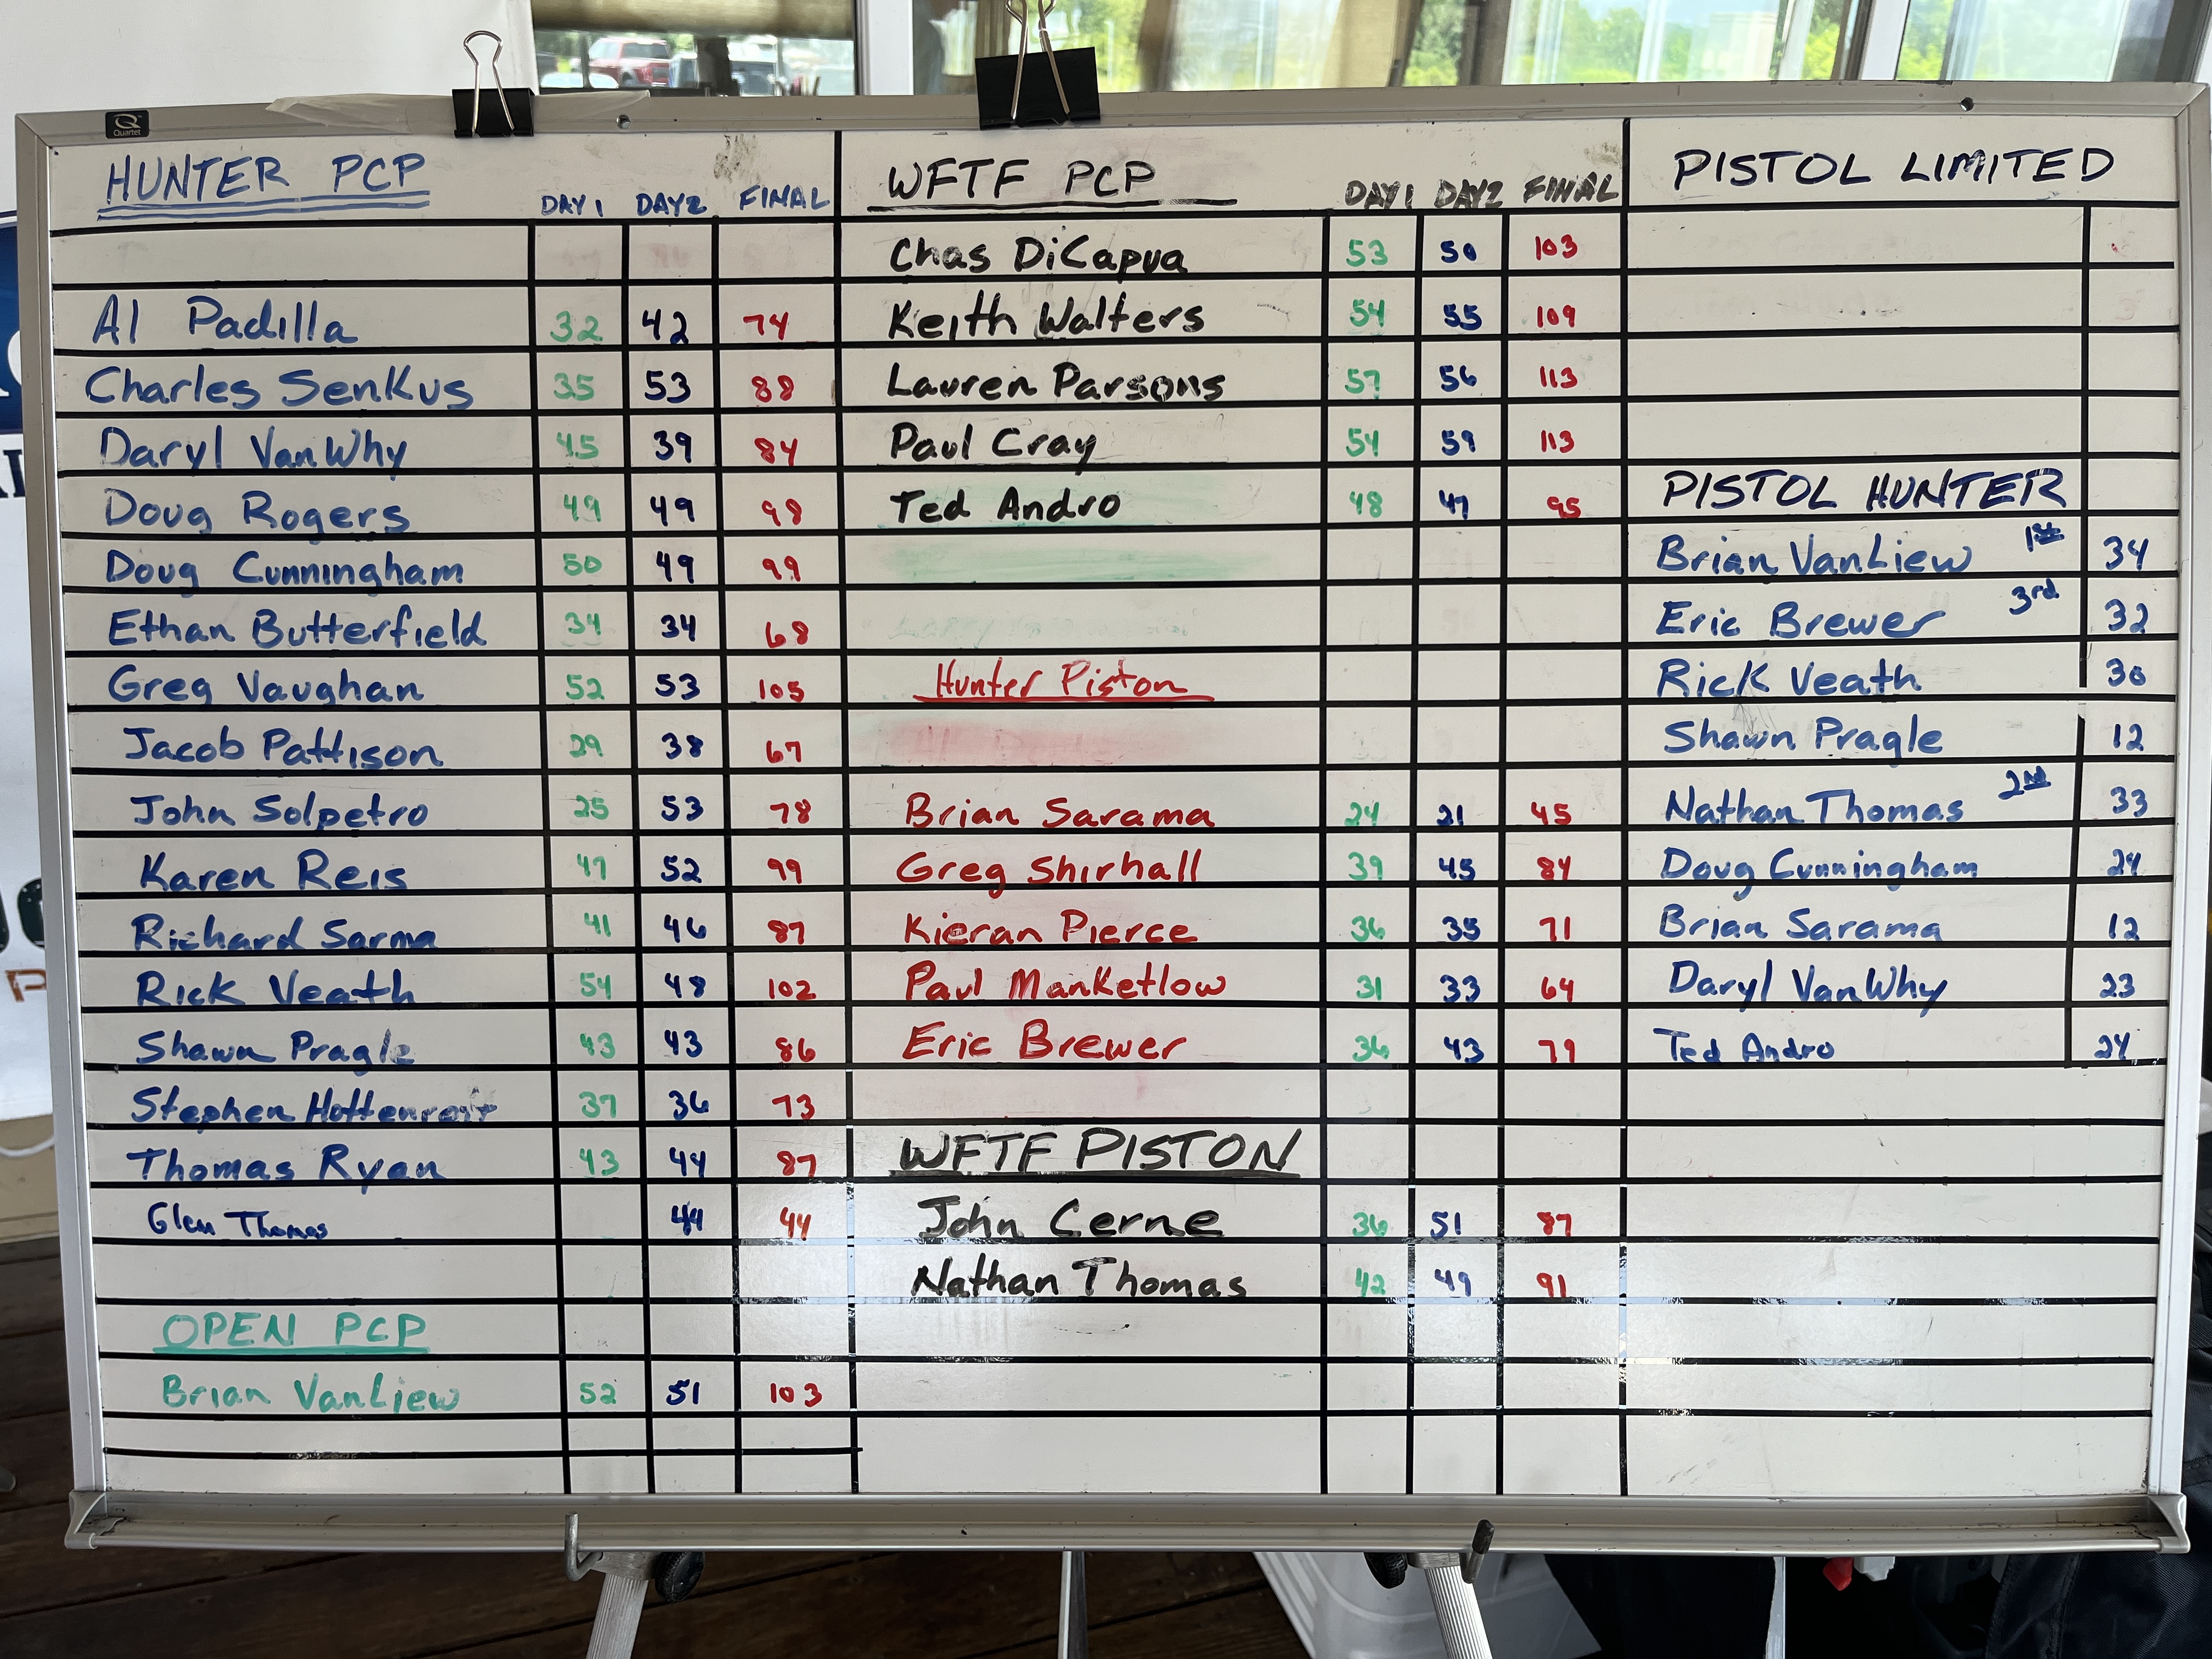 Quartet
HUNTER PCP DAY1 DAY2 FINAL
Al Padilla 32 42 74
Charles Senkus 35 53 88
Daryl VanWhy 45 39 84
Doug Rogers 49 49 98
Doug Cunningham 50 49 99
Ethan Butterfield 34 34 68
Greg Vaughan 52 53 105
Jacob Pattison 29 38 67
John Solpetro 25 53 78
Karen Reis 47 52 99
Richard Sarma 41 46 87
Rick Veath 54 48 102
Shawn Pragle 43 43 86
Stephen 37 36 73
Thomas Ryan 43 44 87
Glen Thomas 44 44
OPEN PCP
Brian VanLiew 52 51 103
WFTF PCP DAY1 DAY2 FINAL
Chas DiCapua 53 50 103
Keith Walters 54 55 109
Lauren Parsons 57 56 113
Paul Cray 54 59 113
Ted Andro 48 47 95
Hunter Piston
Brian Sarama 24 21 45
Greg Shirhall 39 45 84
Kieran Pierce 36 35 71
Paul Manketlow 31 33 64
Eric Brewer 36 43 79
WFTF PISTON
John Cerne 36 51 87
Nathan Thomas 42 49 91
PISTOL LIMITED
PISTOL HUNTER
Brian VanLiew 1st 34
Eric Brewer 3rd 32
Rick Veath 30
Shawn Pragle 12
Nathan Thomas 2nd 33
Doug Cunningham 24
Brian Sarama 12
Daryl VanWhy 23
Ted Andro 24